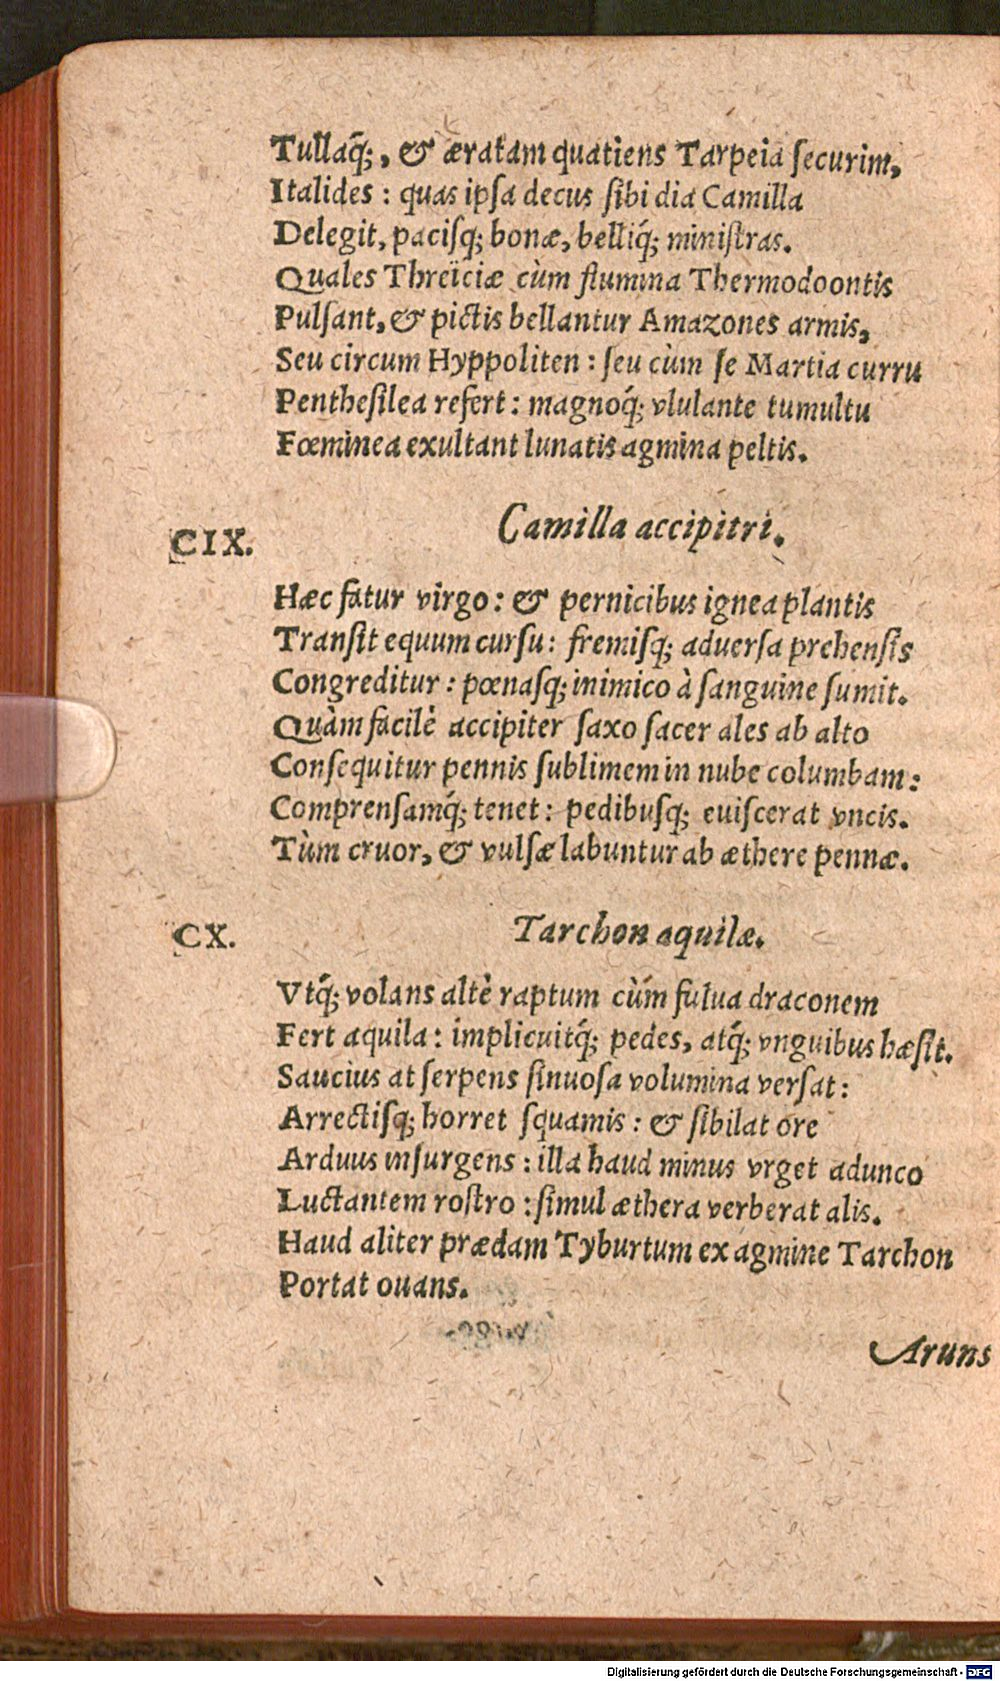 Tullaq́;, & æratam quatiens Tarpeia ſecurim,
Italides: quas ipſa decus ſibi dia Camilla
Delegit, paciſq; bonæ, belliq́; miniſtras.
Quales Threïciæ cùm flumina Thermodoontis
Pulſant, & pictis bellantur Amazones armis,
Seu circum Hyppoliten: ſeu cùm ſe Martia curru
Pentheſilea refert: magnoq́; vlulante tumultu
Fœminea exultant lunatis agmina peltis.
Camilla accipitri.
CIX.
Hæc fatur virgo: & pernicibus ignea plantis
Tranſit equum curſu: fremiſq; aduerſa prehenſis
Congreditur: pœnaſq; inimico à ſanguine ſumit.
Quàm facilè accipiter ſaxo ſacer ales ab alto
Conſequitur pennis ſublimem in nube columbam:
Comprenſamq́; tenet: pedibuſq; euiſcerat vncis.
Tùm cruor, & vulſæ labuntur ab æthere pennæ.
CX.
Tarchon aquilæ.
Vtq́; volans altè raptum cùm fulua draconem
Fert aquila: implicuitq́; pedes, atq́; vnguibus hæſit.
Saucius at ſerpens ſinuoſa volumina verſat:
Arrectiſq; horret ſquamis: & ſibilat ore
Arduus inſurgens: illa haud minus vrget adunco
Luctantem roſtro: ſimul æthera verberat alis.
Haud aliter prædam Tyburtum ex agmine Tarchon
Portat ouans.
Aruns
Digitalisierung gefördert durch die Deutsche Forschungsgemeinschaft - DFG